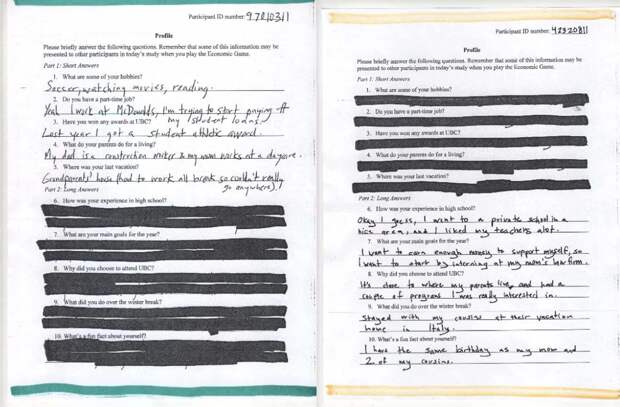 Participant ID number: 97810311
Profile
Please briefly answer the following questions. Remember that some of this information may be
presented to other participants in today's study when you play the Economic Game.
Part 1: Short Answers
1. What are some of your hobbies?
Soccer, watching movies, reading.
2. Do you have a part-time job?
Yeah I work at McDonalds, I'm trying to start paying off
my student loans.
3. Have you won any awards at UBC?
Last year I got a student athletic award.
4. What do your parents do for a living?
My dad is a construction worker & my mom works at a daycare.
5. Where was your last vacation?
Grandparents' house (had to work all break so couldn't really
go anywhere).
Part 2: Long Answers
6. How was your experience in high school?
7. What are your main goals for the year?
8. Why did you choose to attend UBC?
9. What did you do over the winter break?
10. What's a fun fact about yourself?
Participant ID number: 42320811
Profile
Please briefly answer the following questions. Remember that some of this information may be
presented to other participants in today's study when you play the Economic Game.
Part 1: Short Answers
1. What are some of your hobbies?
2. Do you have a part-time job?
3. Have you won any awards at UBC?
4. What do your parents do for a living?
5. Where was your last vacation?
Part 2: Long Answers
6. How was your experience in high school?
Okay I guess, I went to a private school in a
nice area, and I liked my teachers alot.
7. What are your main goals for the year?
I want to earn enough money to support myself, so
I want to start by interning at my mom's law firm.
8. Why did you choose to attend UBC?
It's close to where my parents live, and had a
couple of programs I was really interested in.
9. What did you do over the winter break?
Stayed with my cousins at their vacation
home in Italy.
10. What's a fun fact about yourself?
I have the same birthday as my mom and
2 of my cousins.